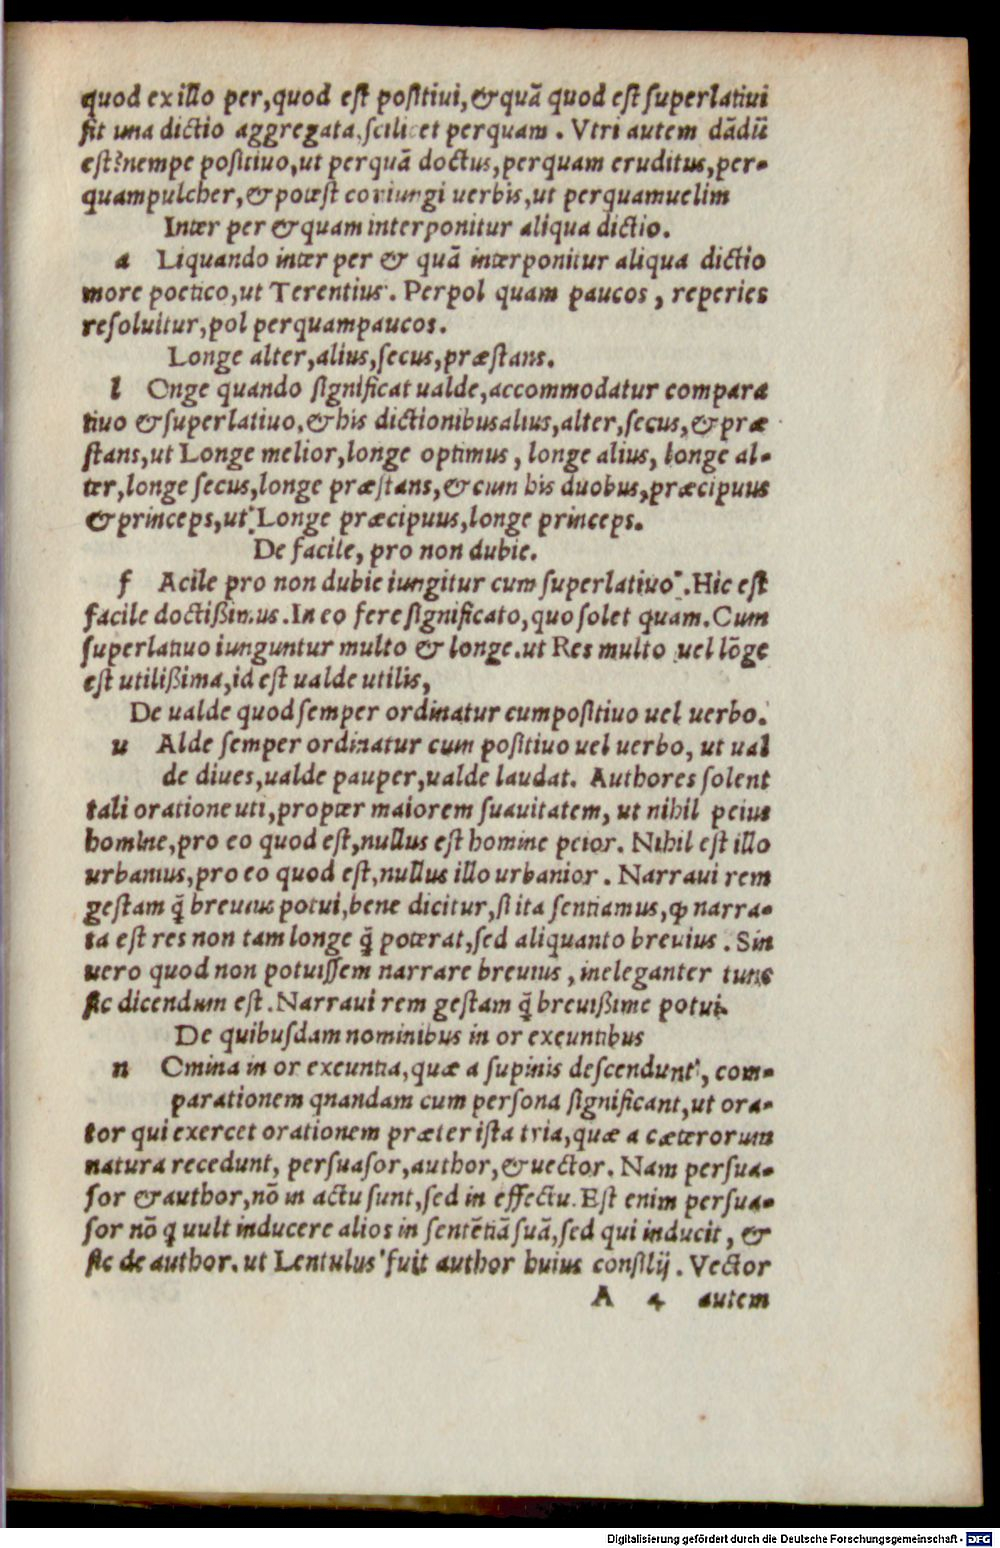 quod ex illo per,quod est positiui,&quã quod est superlatiui
fit una dictio aggregata,scilicet perquam. Vtri autem dãdũ
est?nempe positiuo,ut perquã doctus,perquam eruditus,per-
quampulcher,&potest coniungi uerbis,ut perquamuelim
Inter per &quam interponitur aliqua dictio.
a Liquando inter per & quã interponitur aliqua dictio
more poetico,ut Terentius. Perpol quam paucos, reperies
resoluitur,pol perquampaucos.
Longe alter,alius,secus,præstans.
l Onge quando significat ualde,accommodatur compara
tiuo &superlatiuo,&his dictionibusalius,alter,secus,&præ
stans,ut Longe melior,longe optimus, longe alius, longe al-
ter,longe secus,longe præstans,&cum his duobus,præcipuus
&princeps,ut Longe præcipuus,longe princeps.
De facile, pro non dubie.
f Acile pro non dubie iungitur cum superlatiuo. Hic est
facile doctißimus. In eo fere significato,quo solet quam.Cum
superlatiuo iunguntur multo & longe.ut Res multo uel lõge
est utilißima,id est ualde utilis,
De ualde quod semper ordinatur cumpositiuo uel uerbo.
u Alde semper ordinatur cum positiuo uel uerbo, ut ual
de diues,ualde pauper,ualde laudat. Authores solent
tali oratione uti,propter maiorem suauitatem, ut nihil peius
homine,pro eo quod est,nullus est homine peior. Nihil est illo
urbanius,pro eo quod est,nullus illo urbanior. Narraui rem
gestam q̃ breuius potui,bene dicitur,si ita sentiamus,ꝙ narra-
ta est res non tam longe q̃ poterat,sed aliquanto breuius. Sin
uero quod non potuissem narrare breuius, ineleganter tunc
sic dicendum est. Narraui rem gestam q̃ breuißime potui.
De quibusdam nominibus in or exeuntibus
n Omina in or exeuntia,quæ a supinis descendunt, com-
parationem qnandam cum persona significant,ut ora-
tor qui exercet orationem præter ista tria,quæ a cæterorum
natura recedunt, persuasor,author,&uector. Nam persua-
sor &author,nõ in actu sunt,sed in effectu. Est enim persua-
sor nõ q uult inducere alios in sentẽtiã suã,sed qui inducit, &
sic de author. ut Lentulus fuit author huius consilij. Vector
A 4 autem
Digitalisierung gefördert durch die Deutsche Forschungsgemeinschaft - DFG